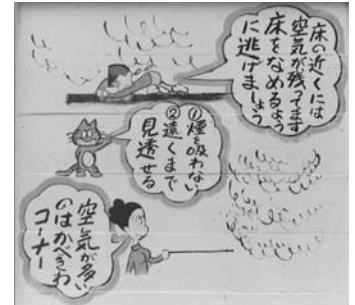 床の近くには
空気が残ってます
床をなめるよう
に逃げましょう
①煙を吸わない
②遠くまで
見透せる
空気が多い
のはかべぎわ
コーナー